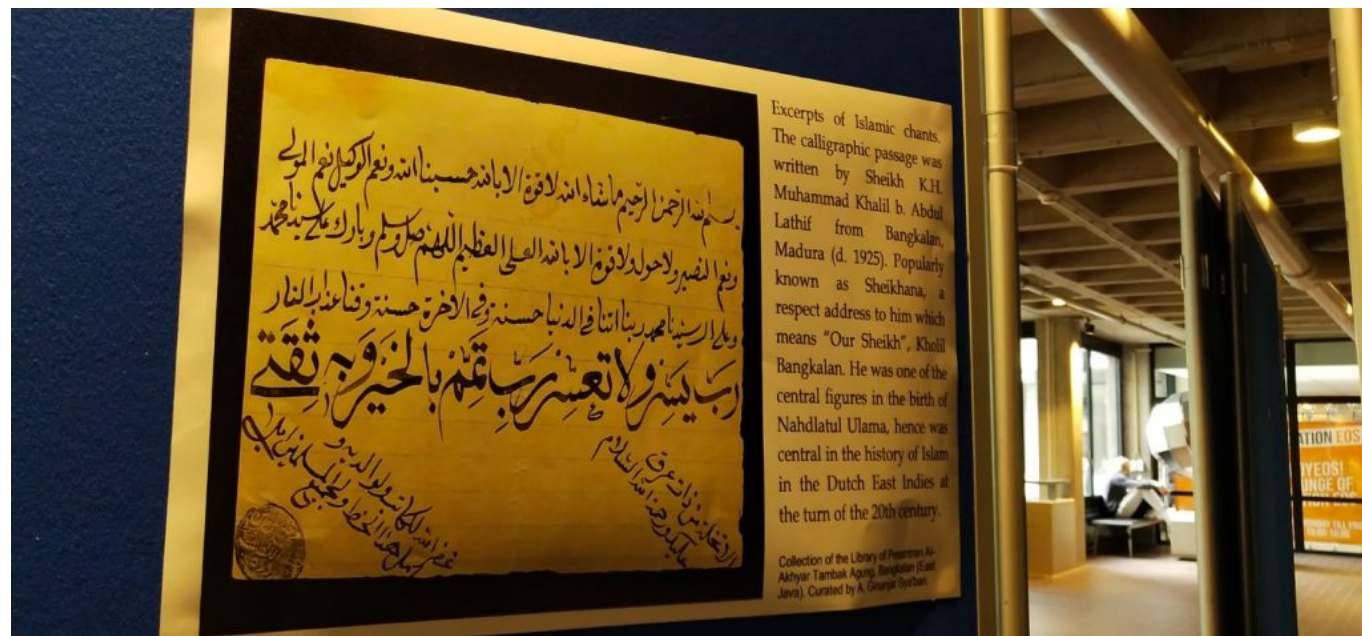 بسم الله الرحمن الرحيم ما شاء الله لا قوة الا بالله حسبنا الله ونعم الوكيل نعم المولى
ونعم النصير ولا حول ولا قوة الا بالله العلي العظيم اللهم صل وسلم وبارك على سيدنا محمد
وعلى ال سيدنا محمد ربنا اتنا في الدنيا حسنة وفي الاخرة حسنة وقنا عذاب النار
رَبِّ يَسِّرْ وَلَا تُعَسِّرْ رَبِّ تَمِّمْ بِالْخَيْرِ وَبِهِ ثِقَتِي
من ذات عرق
عليك ورحمة الله السلام
غفر الله لكاتبه ولوالديه و
Excerpts of Islamic chants.
The calligraphic passage was
written by Sheikh K.H.
Muhammad Khalil b. Abdul
Lathif from Bangkalan,
Madura (d. 1925). Popularly
known as Sheikhana, a
respect address to him which
means "Our Sheikh", Kholil
Bangkalan. He was one of the
central figures in the birth of
Nahdlatul Ulama, hence was
central in the history of Islam
in the Dutch East Indies at
the turn of the 20th century.
Collection of the Library of Pesantren Al-
Akhyar Tambak Agung, Bangkalan (East
Java). Curated by A. Ginanjar Sya'ban.
ATION EOS
OYEOS!
UNGE OF